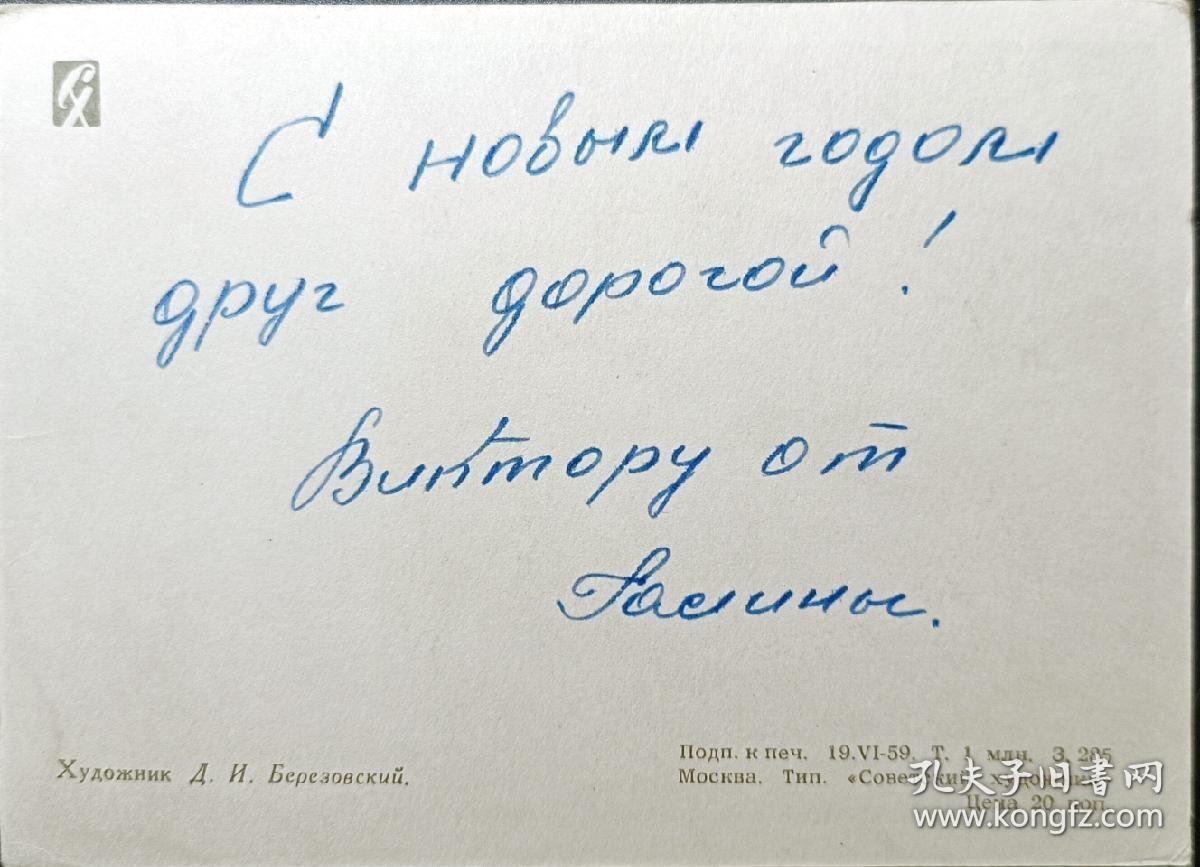 СХ
С новым годом
друг дорогой!
Виктору от
Галины.
Художник Д. И. Березовский.
Подп. к печ. 19.VI-59. Т. 1 млн. З. 295
Москва. Тип. «Советский художник»
Цена 20 коп.
孔夫子旧书网
www.kongfz.com